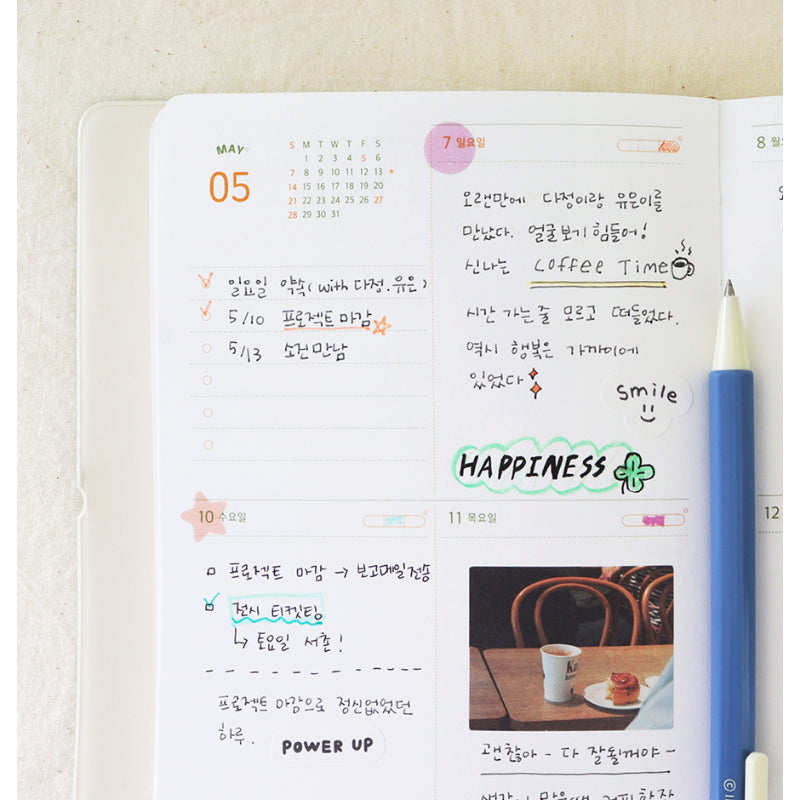 MAY
05
S M T W T F S
1 2 3 4 5 6
7 8 9 10 11 12 13
14 15 16 17 18 19 20
21 22 23 24 25 26 27
28 29 30 31
일요일 약속( with 다정.유은)
5/10 프로젝트 마감
5/13 소건만남
7 일요일
오랜만에 다정이랑 유은이를
만났다. 얼굴보기 힘들어!
신나는 Coffee Time
시간 가는 줄 모르고 떠들었다.
역시 행복은 가까이에
있었다
smile
HAPPINESS
8 월
10 수요일
프로젝트 마감 → 보고메일전송
전시 티켓팅
↳ 토요일 서촌!
프로젝트 마감으로 정신없었던
하루.
POWER UP
11 목요일
괜찮아 - 다 잘될꺼야 -
12